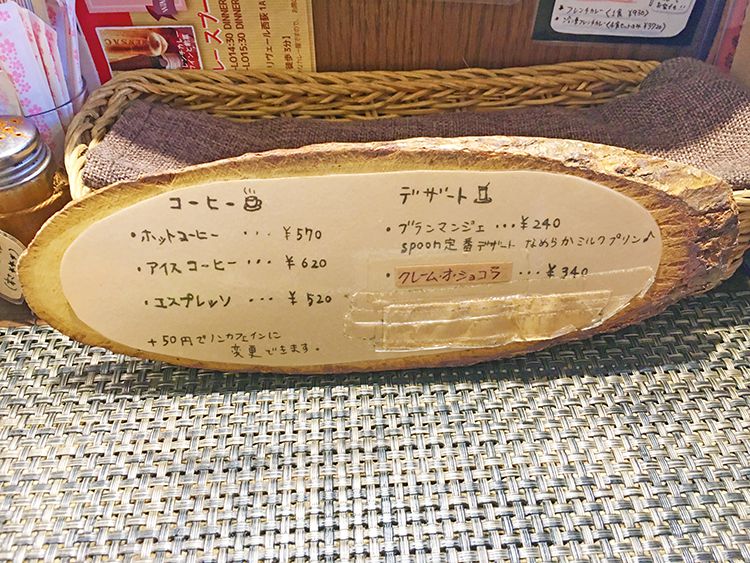 レー スプー
-LO14:30 DINNER
-LO15:30 DINNER
リヴェール西荻 1A
徒歩 3分】
・フレンチカレー（1食 ¥930）
コーヒー
・ホットコーヒー ･･･ ¥570
・アイスコーヒー ･･･ ¥620
・エスプレッソ ･･･ ¥520
+50円でノンカフェインに
変更できます。
デザート
・ブランマンジェ ･･･ ¥240
spoon定番デザート なめらかミルクプリン♪
・クレーム・オ・ショコラ ･･･ ¥340